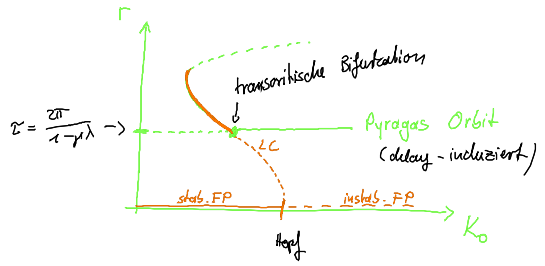 r
transcritische Bifurcation
τ = 2π / 1-μλ ->
Pyragas Orbit
LC
(delay-induziert)
stab. FP
instab. FP
Hopf
K₀